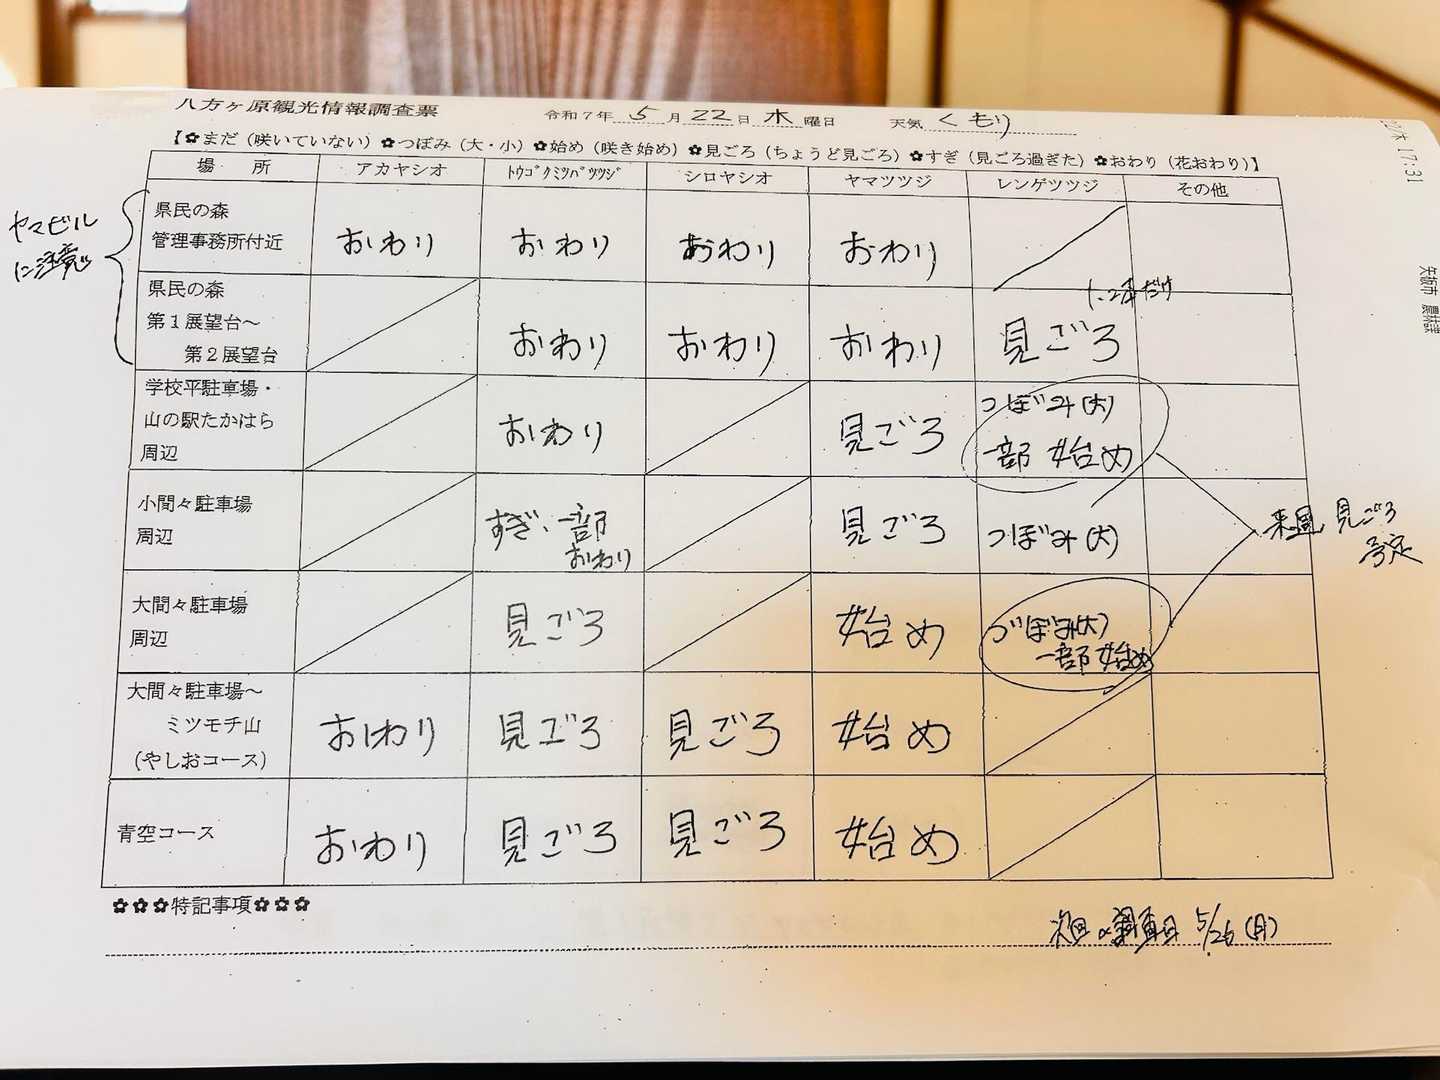 八方ヶ原観光情報調査票 令和7年 5 月 22 日 木 曜日 天気 くもり
【✿まだ（咲いていない）✿つぼみ（大・小）✿始め（咲き始め）✿見ごろ（ちょうど見ごろ）✿すぎ（見ごろ過ぎた）✿おわり（花おわり）】
場 所 アカヤシオ トウゴクミツバツツジ シロヤシオ ヤマツツジ レンゲツツジ その他
ヤマビル
に注意
県民の森
管理事務所付近 おわり おわり おわり おわり
県民の森
第1展望台～
第2展望台 おわり おわり おわり 見ごろ
1、2本だけ
学校平駐車場・
山の駅たかはら
周辺 おわり 見ごろ つぼみ(大)
一部 始め
小間々駐車場
周辺 すぎ、一部
おわり 見ごろ つぼみ(大)
来週 見ごろ
予定
大間々駐車場
周辺 見ごろ 始め つぼみ(大)
一部 始め
大間々駐車場～
ミツモチ山
（やしおコース） おわり 見ごろ 見ごろ 始め
青空コース おわり 見ごろ 見ごろ 始め
✿✿✿特記事項✿✿✿
次回の調査日 5/26(月)
22/木 17:31
矢板市 農林課